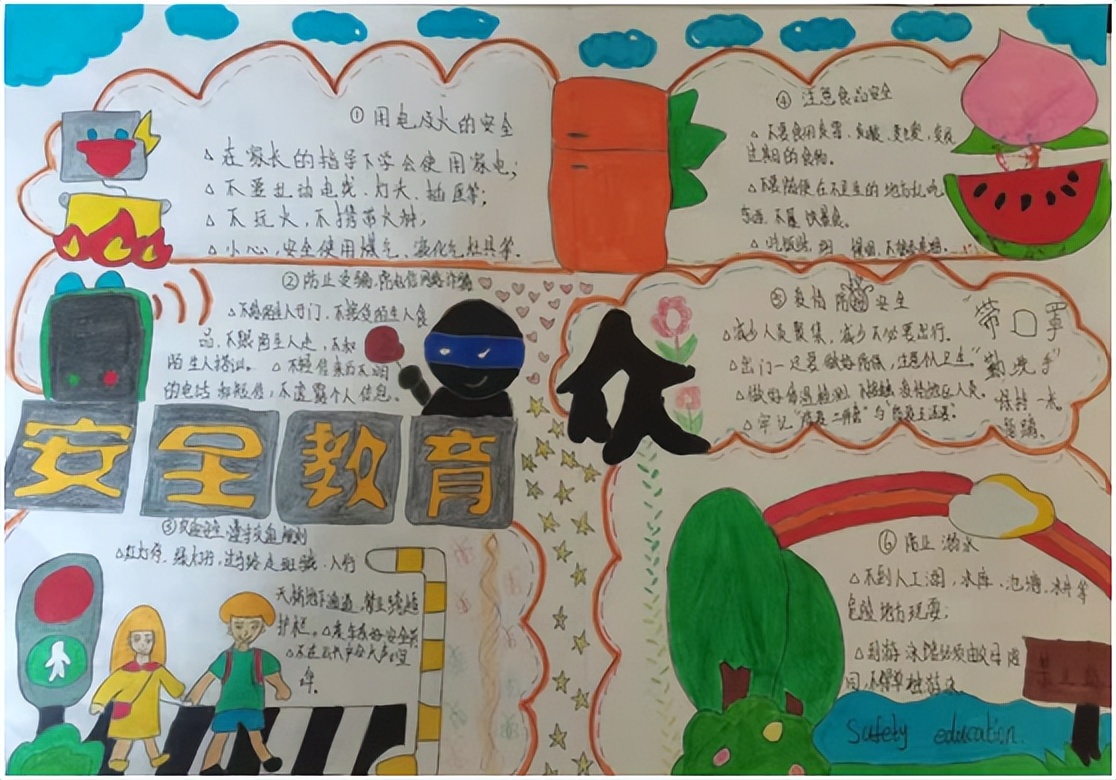 ① 用电及火的安全
△在家长的指导下学会使用家电;
△不要乱动电线、灯头、插座等;
△不玩火,不携带火种;
△小心,安全使用煤气、液化气灶具等。
② 防止受骗,防短信网络诈骗
△不给陌生人开门、不接受陌生人食
品、不跟陌生人走、不和
陌生人搭讪。△不轻信来历不明
的电话和短信,不透露个人信息。
安全教育
③交通安全,遵守交通规则
△红灯停、绿灯行,过马路走斑马线、人行
天桥地下通道,禁止跨越
护栏。△乘车系好安全带
△不在公共场合大声喧
哗。
④ 注意食品安全
过期的食物。
△不要随便在不卫生的地方乱吃
东西,不暴饮暴食。
⑤疫情防护安全
△减少人员聚集,减少不必要出行。
△出门一定要做好防保,注意个人卫生
△做好体温检测,不接触疫情地区人员。
"带口罩
勤洗手"
保持一米
距离、
⑥ 防止溺水
△不到人工湖,水库、池塘、水井等
危险地方玩耍;
△到游泳馆必须由父母陪
同,不得单独游泳。
Safety education.